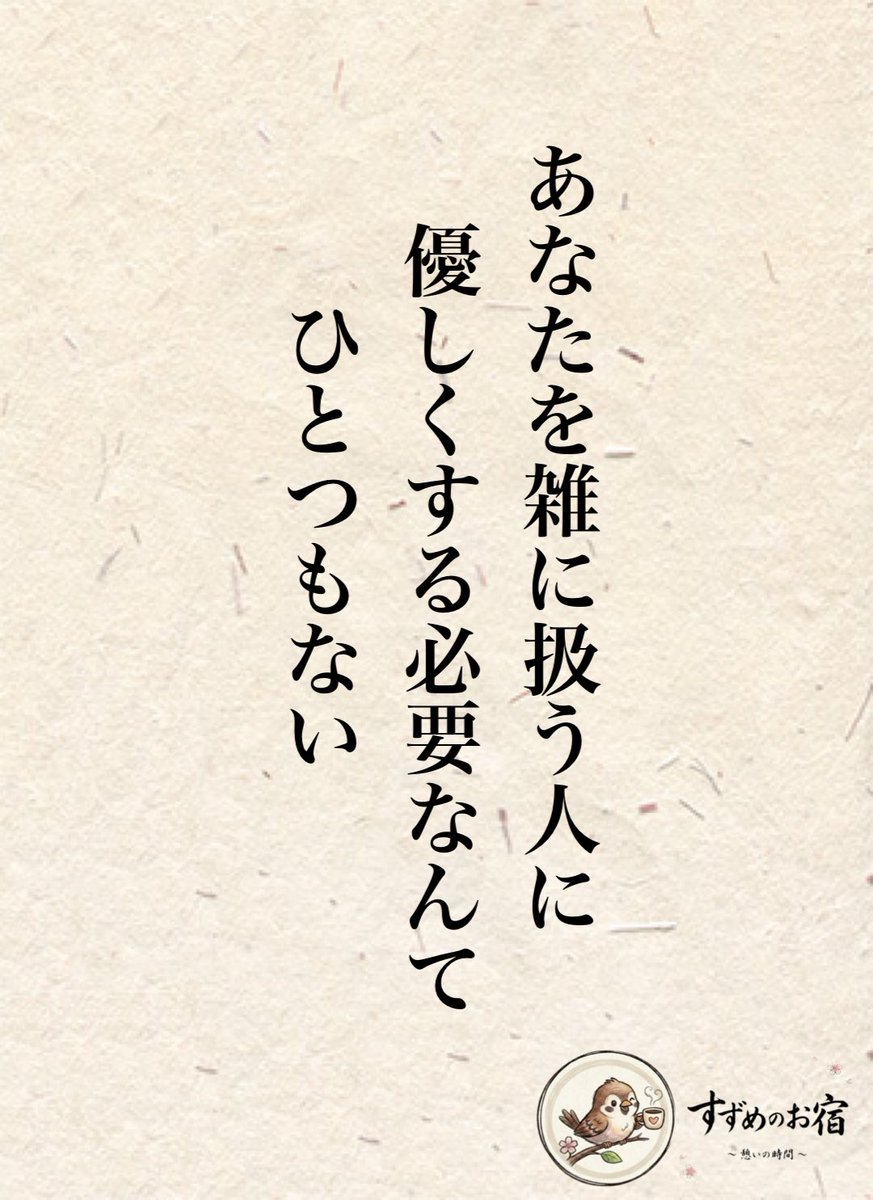 あなたを雑に扱う人に
優しくする必要なんて
ひとつもない
すずめのお宿
～憩いの時間～